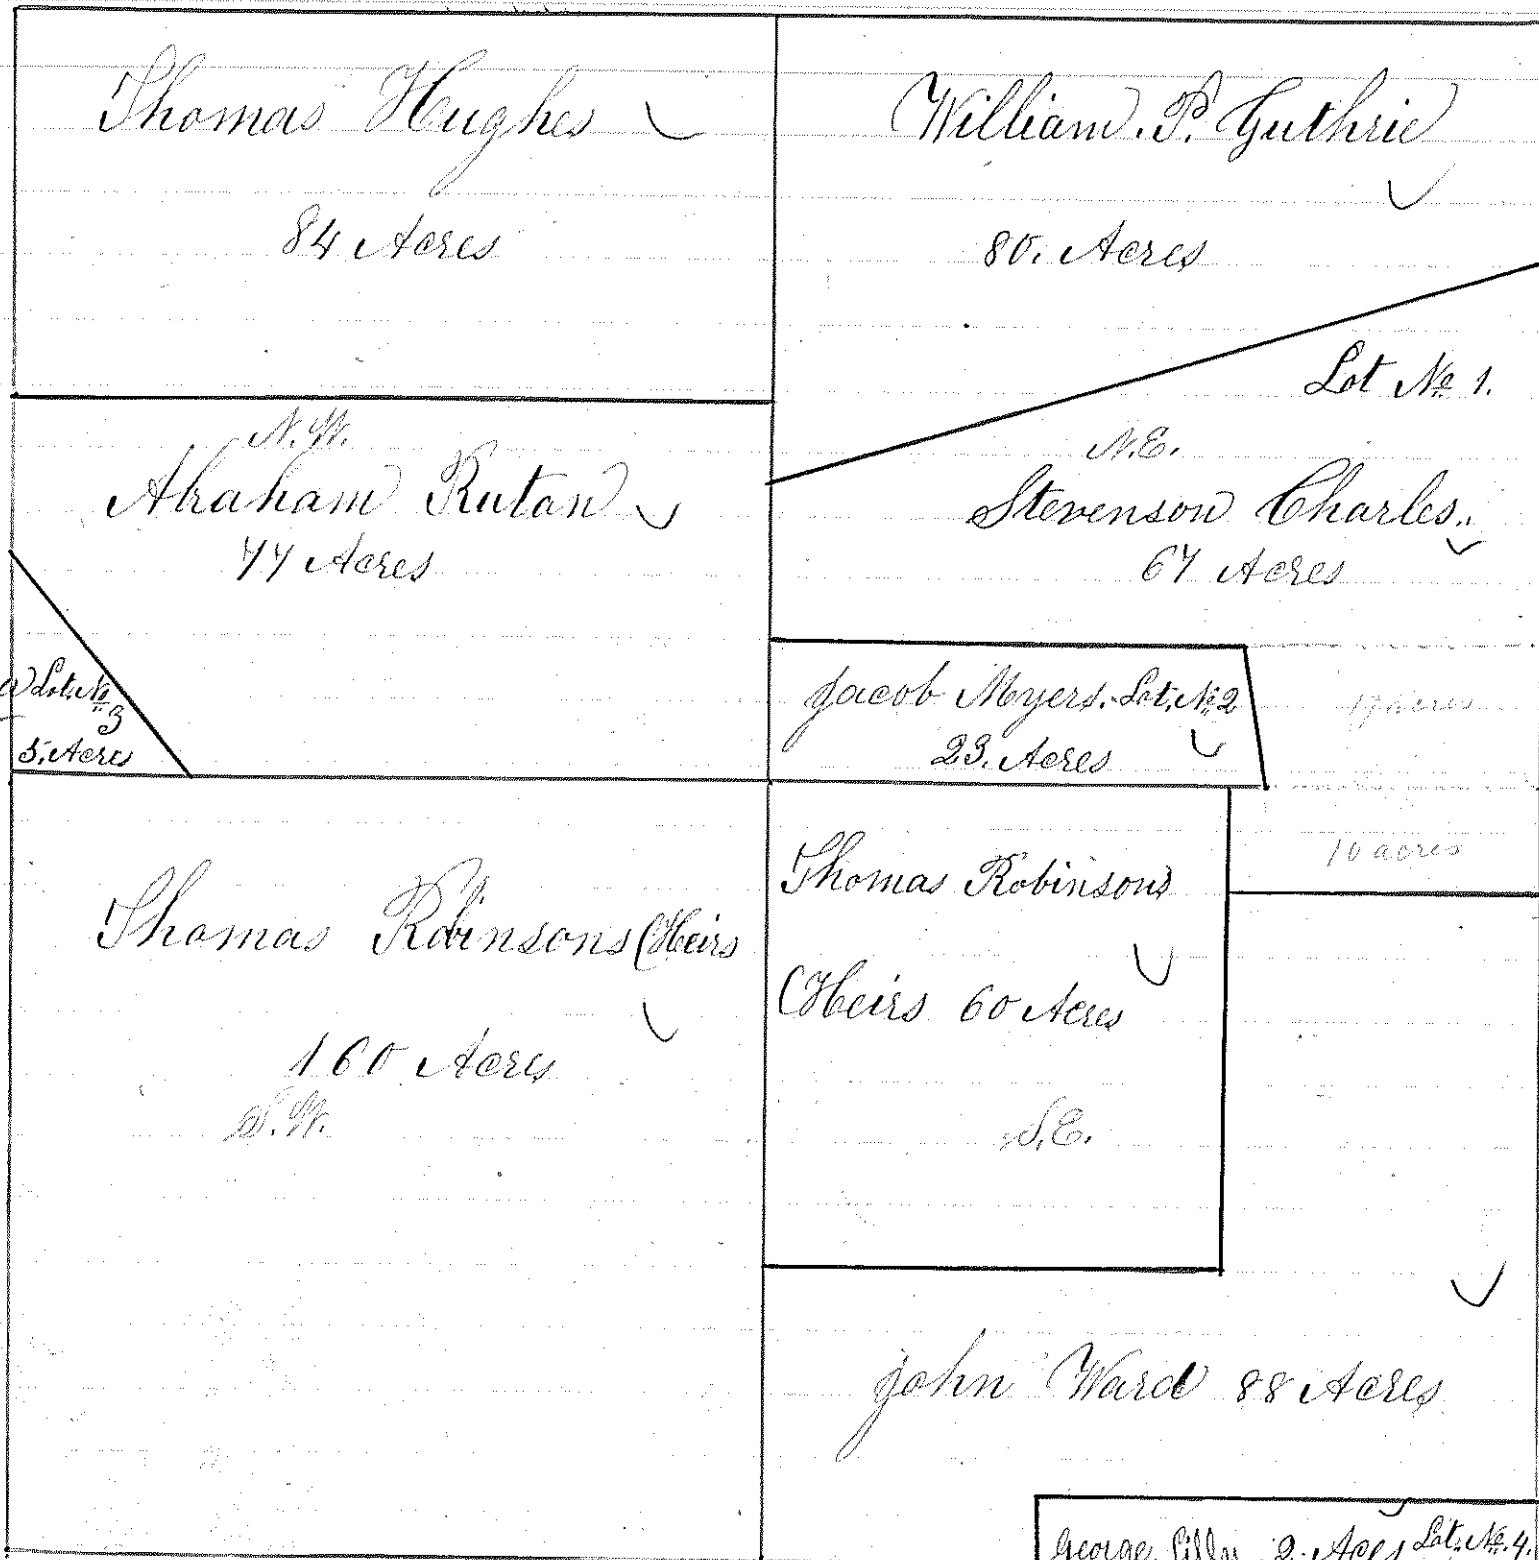 Thomas Hughes
84 Acres
William. P. Guthrie
80. Acres
Lot No 1.
N.W.
Abraham Rutan
77 Acres
N.E.
Stevenson Charles.
67 Acres
Lot. No
3
5. Acres
Jacob Myers. Lot. No. 2
23. Acres
17 acres
10 acres
Thomas Robinsons (Heirs
160 Acres
S.W.
Thomas Robinsons
(Heirs 60 Acres
S.E.
John Ward 88 Acres
George 2. Acres Lot. No. 4.